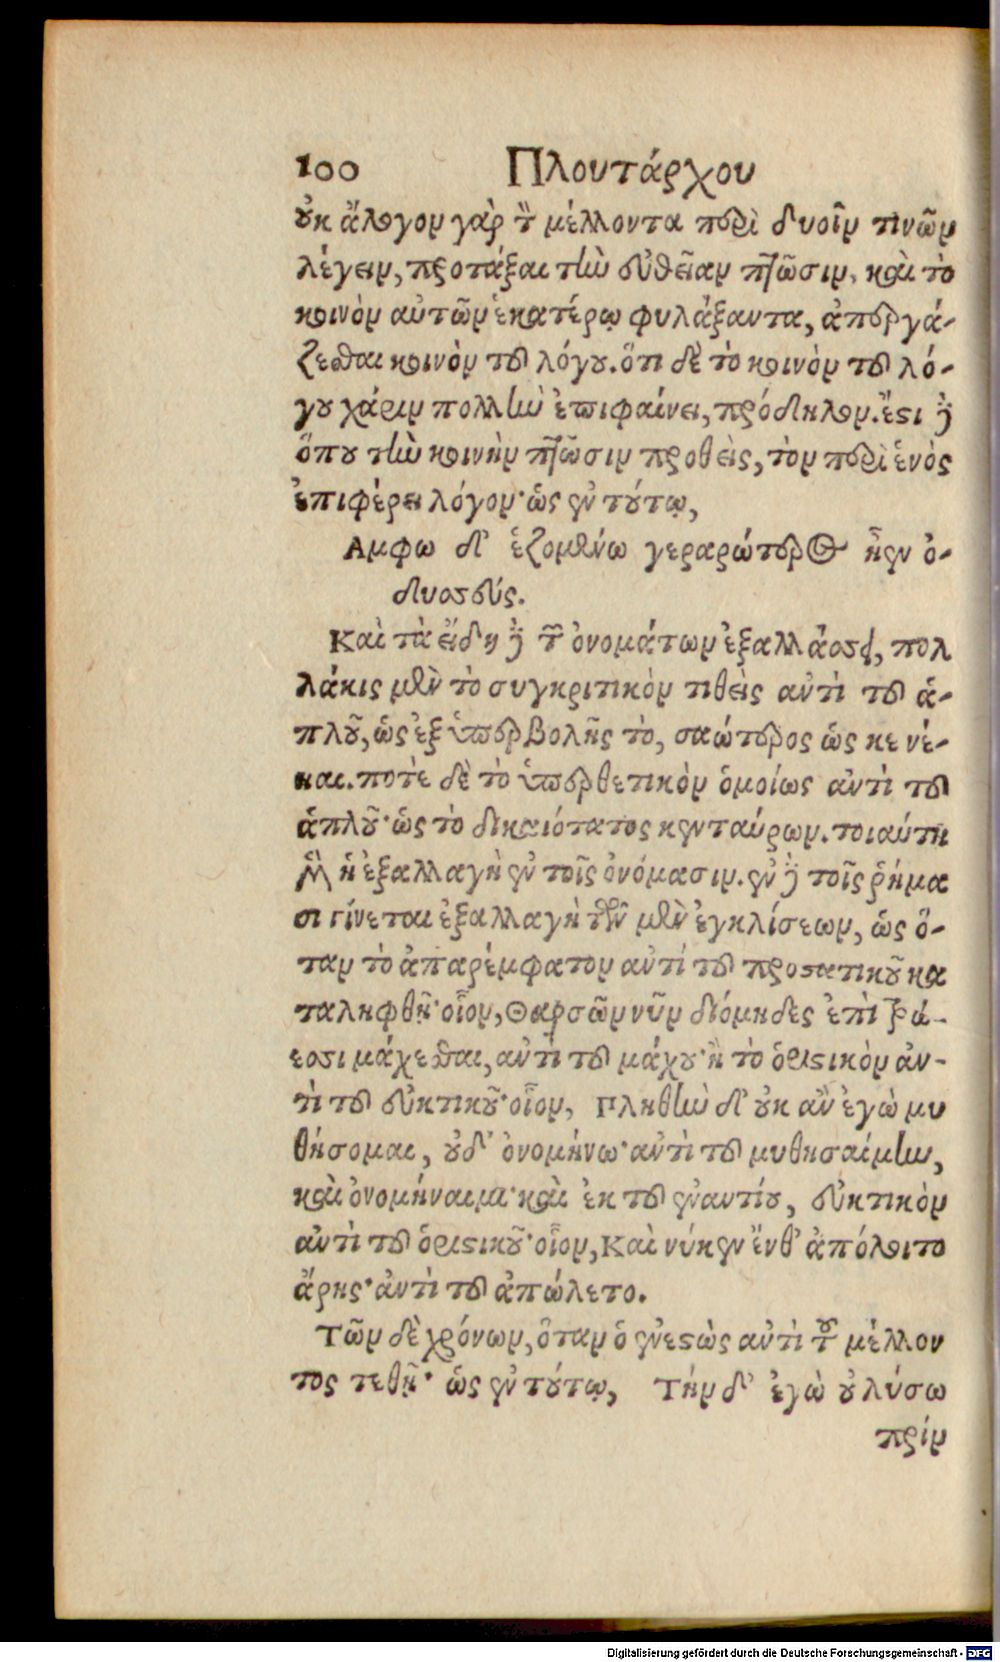 100 Πλουτάρχου
οὐκ ἄλογον γὰρ τὸν μέλλοντα περὶ δυοῖν τινῶν
λέγειν, προτάξαι τὴν εὐθεῖαν πτῶσιν, καὶ τὸ
κοινὸν αὐτῶν ἑκατέρῳ φυλάξαντα, ἀπεργά-
ζεσθαι κοινὸν τοῦ λόγου. ὅτι δὲ τὸ κοινὸν τοῦ λό-
γου χάριν πολλὴν ἐπιφαίνει, πρόδηλον. ἔστι καὶ
ὅπου τὴν κοινὴν πτῶσιν προθεὶς, τὸν περὶ ἑνὸς
ἐπιφέρει λόγον· ὡς ἐν τούτῳ,
Αμφω δ' ἑζομένω γεραρώτερος ἦεν ὀ-
δυσσεύς.
Καὶ τὰ εἴδη καὶ τῶν ὀνομάτων ἐξαλλάσσει, πολ
λάκις μὲν τὸ συγκριτικὸν τιθεὶς αὐτὶ τοῦ ἁ-
πλοῦ, ὡς ἐξ ὑπερβολῆς τὸ, σαώτερος ὡς κε νέ-
ηαι. ποτὲ δὲ τὸ ὑπερθετικὸν ὁμοίως ἀντὶ τοῦ
ἁπλοῦ· ὡς τὸ δικαιότατος κενταύρων. τοιαύτη
μὲν ἡ ἐξαλλαγὴ ἐν τοῖς ὀνόμασιν. ἐν καὶ τοῖς ῥήμα
σι γίνεται ἐξαλλαγὴ τῶν μὲν ἐγκλίσεων, ὡς ὅ-
ταν τὸ ἀπαρέμφατον αὐτὶ τοῦ προστατικοῦ κα
ταληφθῇ· οἷον, Θαρσῶν νῦν διόμηδες ἐπὶ τρώ-
εσσι μάχεσθαι, αὐτὶ τοῦ μάχου· ἢ τὸ ὁριστικὸν ἀν-
τὶ τοῦ εὐκτικοῦ· οἷον, Πληθὺν δ' οὐκ ἂν ἐγὼ μυ
θήσομαι, οὐδ' ὀνομήνω· αὐτὶ τοῦ μυθησαίμην,
καὶ ὀνομήναιμι· καὶ ἐκ τοῦ ἐναντίου, εὐκτικὸν
αὐτὶ τοῦ ὁριστικοῦ· οἷον, Καὶ νύκεν ἔνθ' ἀπόλοιτο
ἄρης· ἀντὶ τοῦ ἀπώλετο.
Τῶν δὲ χρόνων, ὅταν ὁ ἐνεστὼς αὐτὶ τοῦ μέλλον
τος τεθῇ· ὡς ἐν τούτῳ, Τήν δ' ἐγὼ οὐ λύσω
πρίν
Digitalisierung gefördert durch die Deutsche Forschungsgemeinschaft - DFG